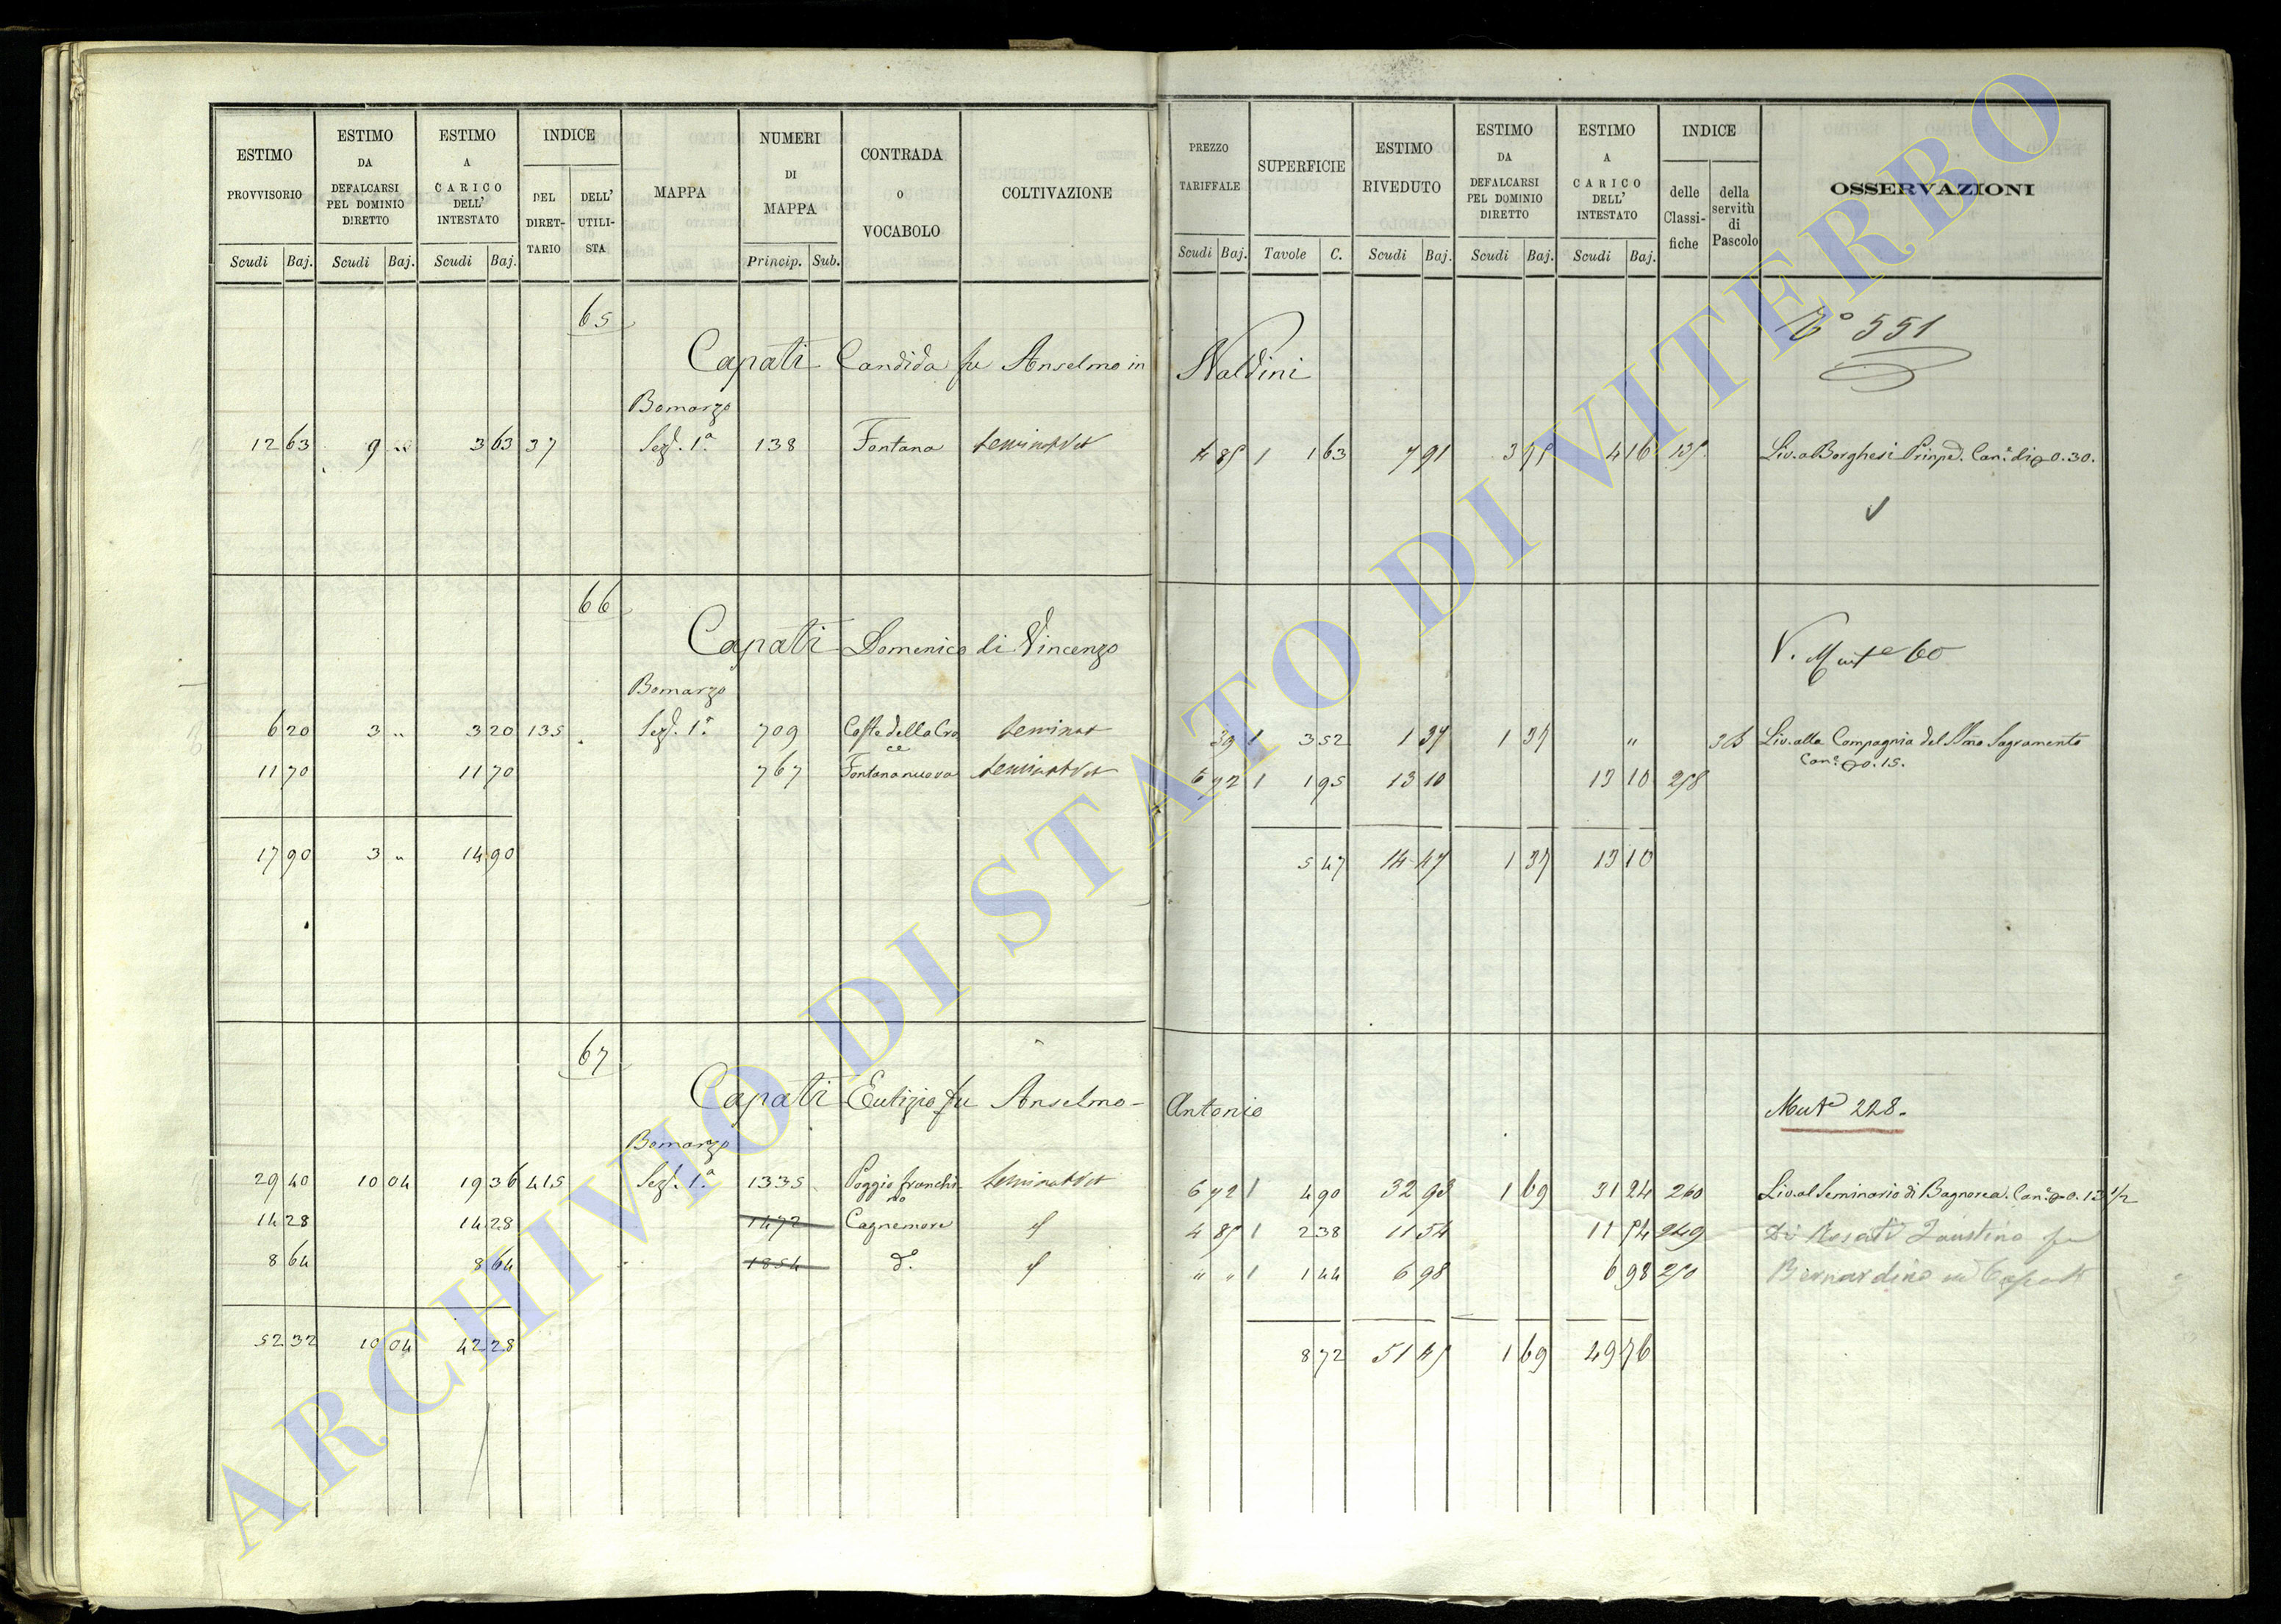 ESTIMO PROVVISORIO Scudi Baj.
ESTIMO DA DEFALCARSI PEL DOMINIO DIRETTO Scudi Baj.
ESTIMO A CARICO DELL' INTESTATO Scudi Baj.
INDICE DEL DIRET-TARIO DELL' UTILI-STA
MAPPA
NUMERI DI MAPPA Princip. Sub.
CONTRADA O VOCABOLO
COLTIVAZIONE
PREZZO TARIFFALE Scudi Baj.
SUPERFICIE Tavole C.
ESTIMO RIVEDUTO Scudi Baj.
ESTIMO DA DEFALCARSI PEL DOMINIO DIRETTO Scudi Baj.
ESTIMO A CARICO DELL' INTESTATO Scudi Baj.
INDICE delle Classi-fiche della servitù di Pascolo
OSSERVAZIONI
65
N° 551
Capati Candida fu Anselmo in Naldini
Bomarzo
12 63 9 " 3 63 37 Sez. 1ª 138 Fontana seminat vit 4 85 1 1 63 7 91 3 75 4 16 Liv. a Borghesi Princ. Can.e di 0.30.
66
Capati Domenico di Vincenzo V. Mut.e 60
Bomarzo
6 20 3 " 3 20 135 Sez. 1ª 709 Coste della Cro seminat 39 1 3 52 1 37 1 37 " Liv. alla Compagnia del SSmo Sagramento
ce Can.e 0.15.
11 70 11 70 767 Fontana nuova seminat vit 6 72 1 1 95 13 10 13 10 258
17 90 3 " 14 90 5 47 14 47 1 37 13 10
67
Capati Eutizio fu Anselmo - Antonio Mut.e 228.
Bomarzo
29 40 10 04 19 36 415 Sez. 1ª 1335 Poggio franchi seminat vit 6 72 1 4 90 32 93 1 69 31 24 260 Liv. al Seminario di Bagnorea. Can.e 0.13 1/2
no
14 28 14 28 1472 Cagnemore 4 85 1 2 38 11 54 11 54 249 Di Rosati Faustino fu
8 64 8 64 1854 d.° " " 1 1 44 6 98 6 98 250 Bernardino
52 32 10 04 42 28 8 72 51 45 1 69 49 76
ARCHIVIO DI STATO DI VITERBO